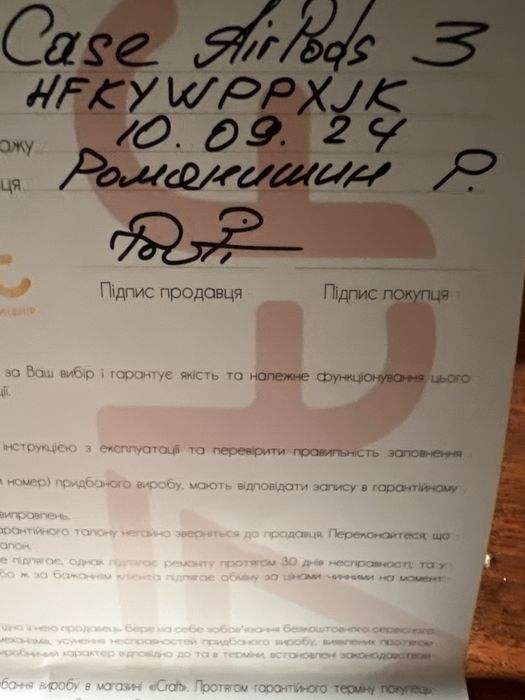 Case AirPods 3
HFKYWPPXJK
ажу 10.09.24
ця Романишин Р.
Підпис продавця Підпис покупця
за Ваш вибір і гарантує якість та належне функціонування цього
ції.
інструкцією з експлуатації та перевірити правильність заповнення
номер) придбаного виробу, мають відповідати запису в гарантійному
виправлень.
арантійного талону негайно зверніться до продавця. Переконайтеся, що
алон.
е підлягає, однак підлягає ремонту протягом 30 днів несправності, та у
бо ж за бажанням клієнта підлягає обміну за цінами чинними на момент
ідно з нею продавець бере на себе зобов'язання безкоштовного сервісного
механізма, усунення несправностей придбаного виробу, виявлених протягом
виробничий характер відповідно до та в терміни, встановлені законодавством
бання виробу в магазині «iCraft». Протягом гарантійного терміну покупець